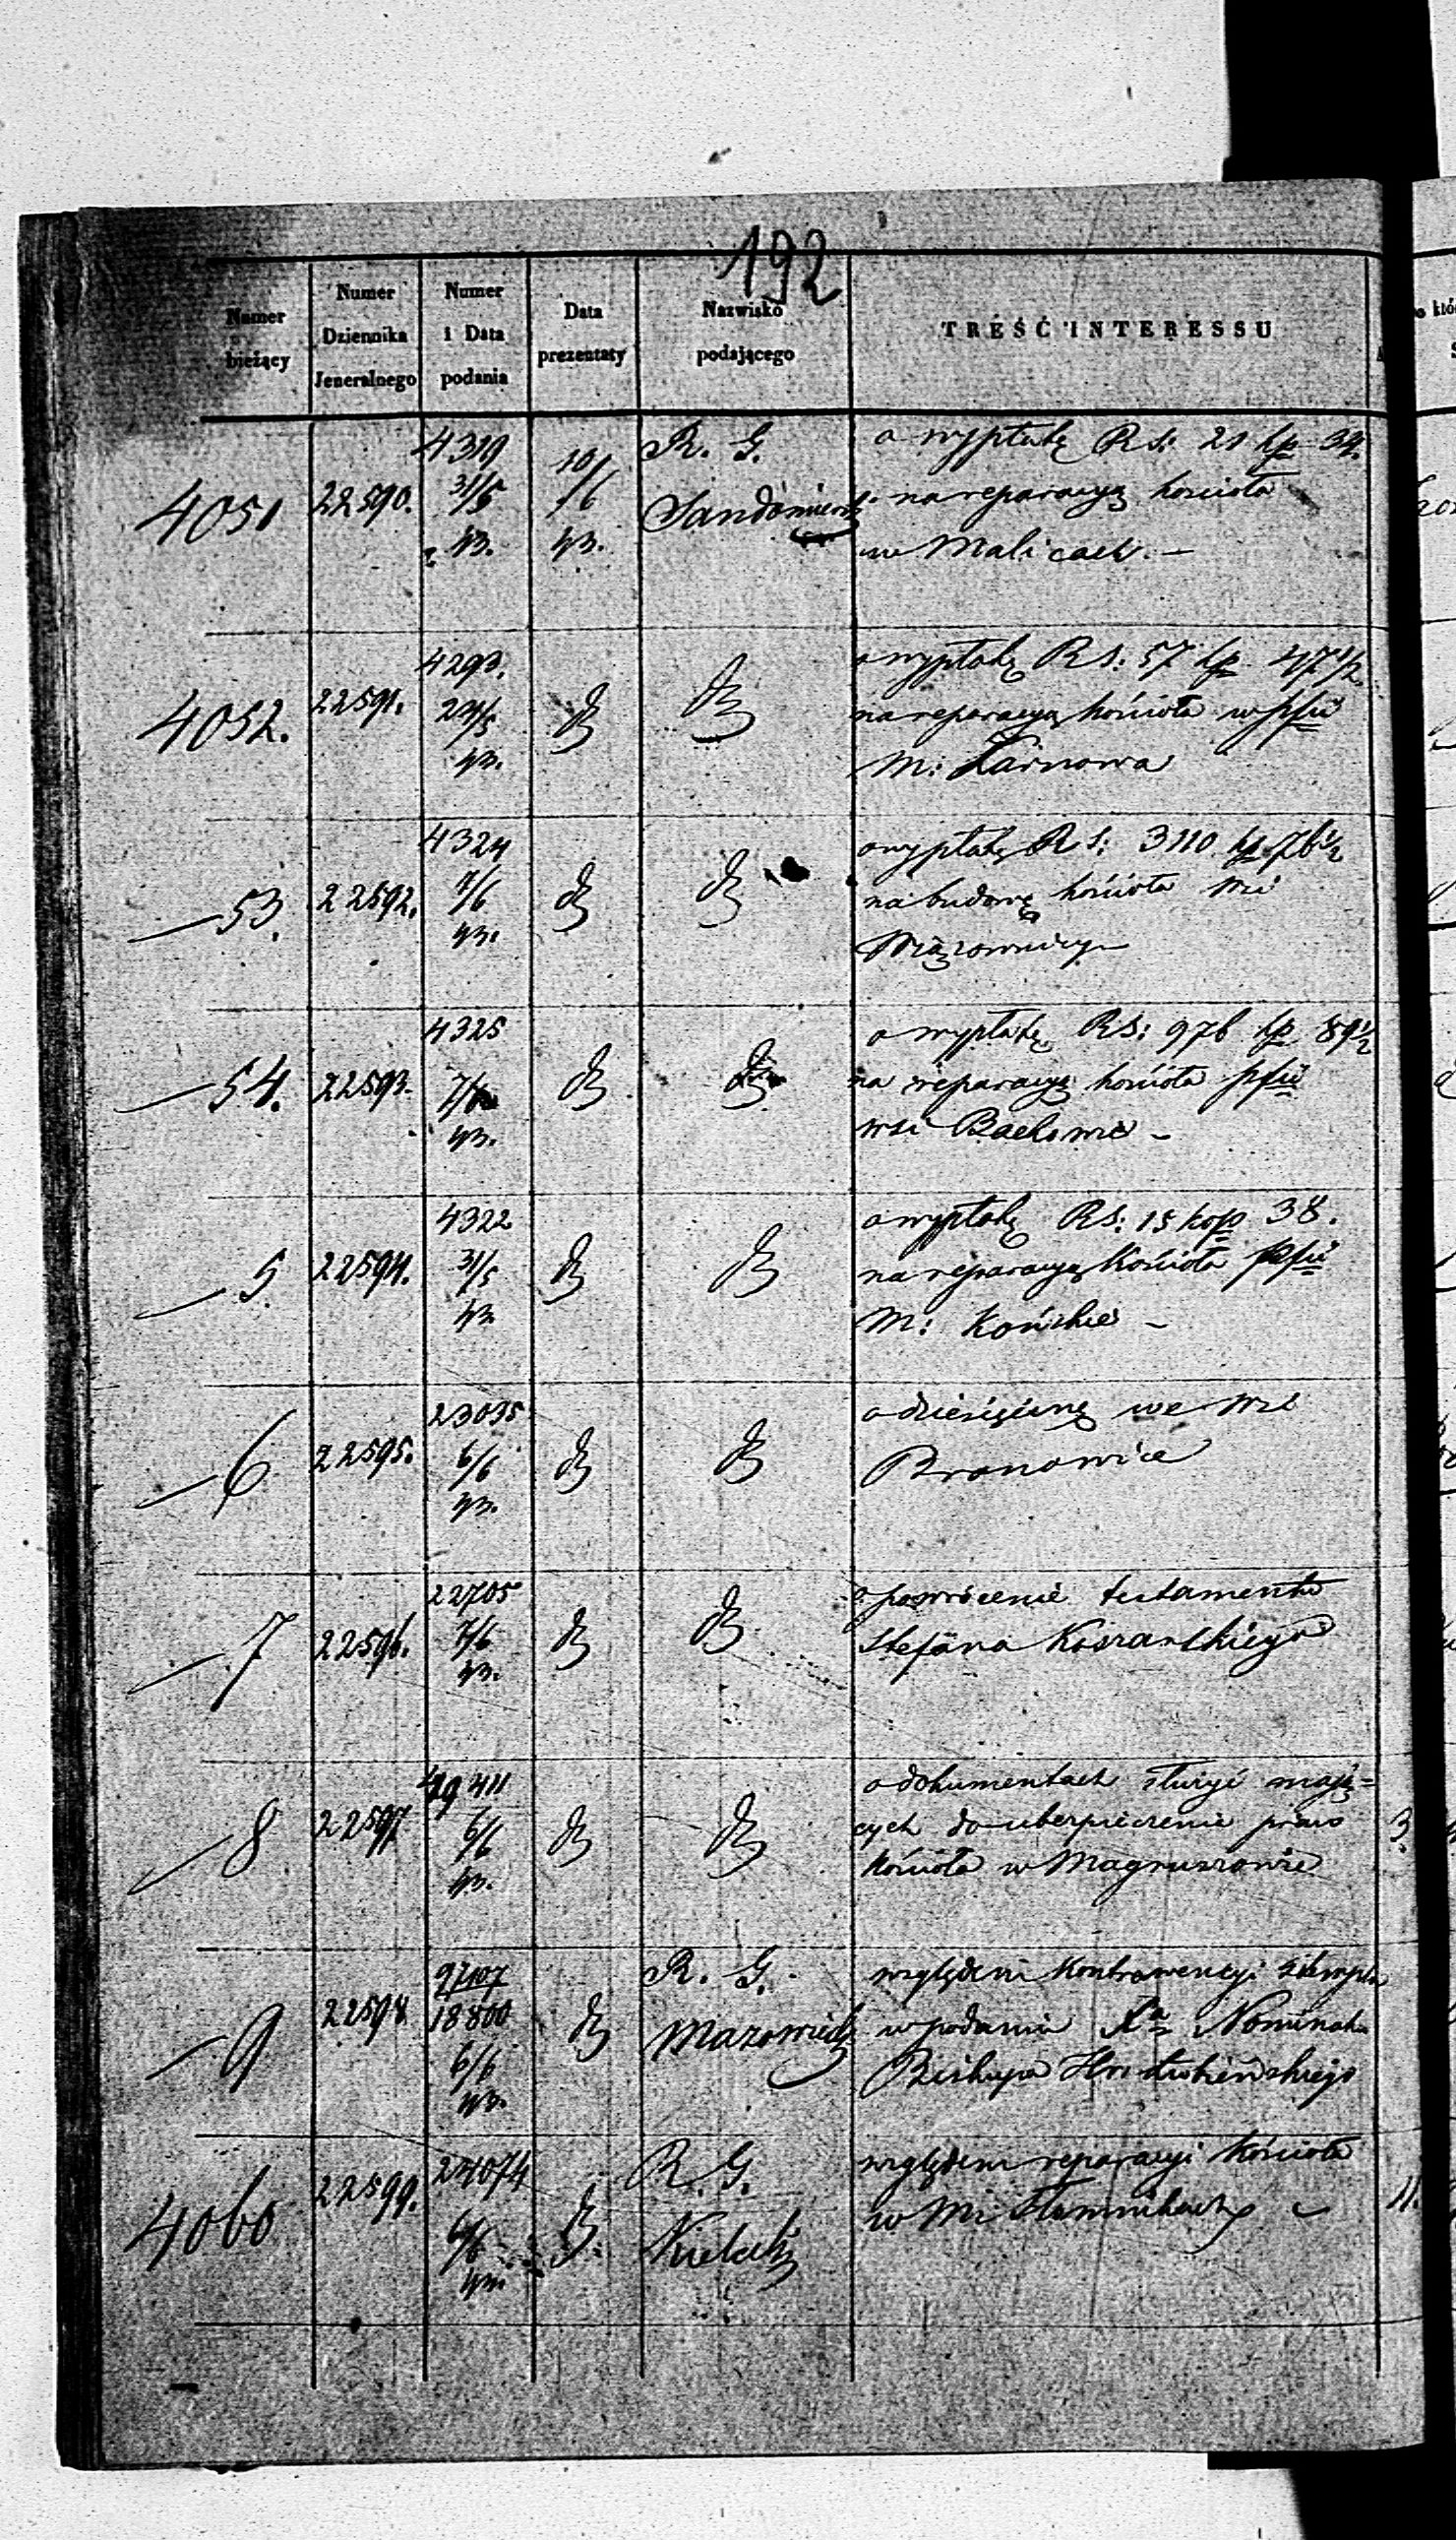 192
Numer bieżący
Numer Dziennika Jeneralnego
Numer i Data podania
Data prezentaty
Nazwisko podającego
TRÉŚĆ INTERESSU
4051 22590. 4319 31/5 43. 10/6 43. R. G. Sandomiersk
o wypłatę Rs: 21 kp 34.
na reparacyą kościoła
we Malicach. —
4052. 22591. 4293. 24/5 43. db db
o wypłatę Rs: 57 kp 47 1/2
na reparacyą kościoła w pfii
M: Żarnowa
—53. 22592. 4324 7/6 43. db db
o wypłatę Rs: 3110 kp 76 1/2
na budowę kościoła wsi
Wiązownicy —
—54. 22593. 4325 7/6 43. db db
o wypłatę Rs: 976 kp 89 1/2
na reparacyą kościoła pfii
wsi —
—5 22594. 4322 31/5 43 db db
o wypłatę Rs: 15 kop 38.
na reparacyą Kościoła pfii
M: Końskie —
—6 22595. 23035 6/6 43. db db
o dziesięcinę we wsi
Bronowice
—7 22596. 22705 7/6 43. db db
o powrócenie testamentu
Stefana
—8 22597 6/6 43. db db
o dokumentach służyć mają=
cych do ubezpieczenia praw
kościoła w Magnuszewie
3.
—9 22598 27107 18800 6/6 43. db R. G. Mazowieck
względem Kontrawencyi stempla
w podaniu Xa Nominata
Biskupa
4060 22599. 24074 6/6 43. db R. G. Kielecki
względem reparacyi Kościoła
w Mi Słomnikach —
11.